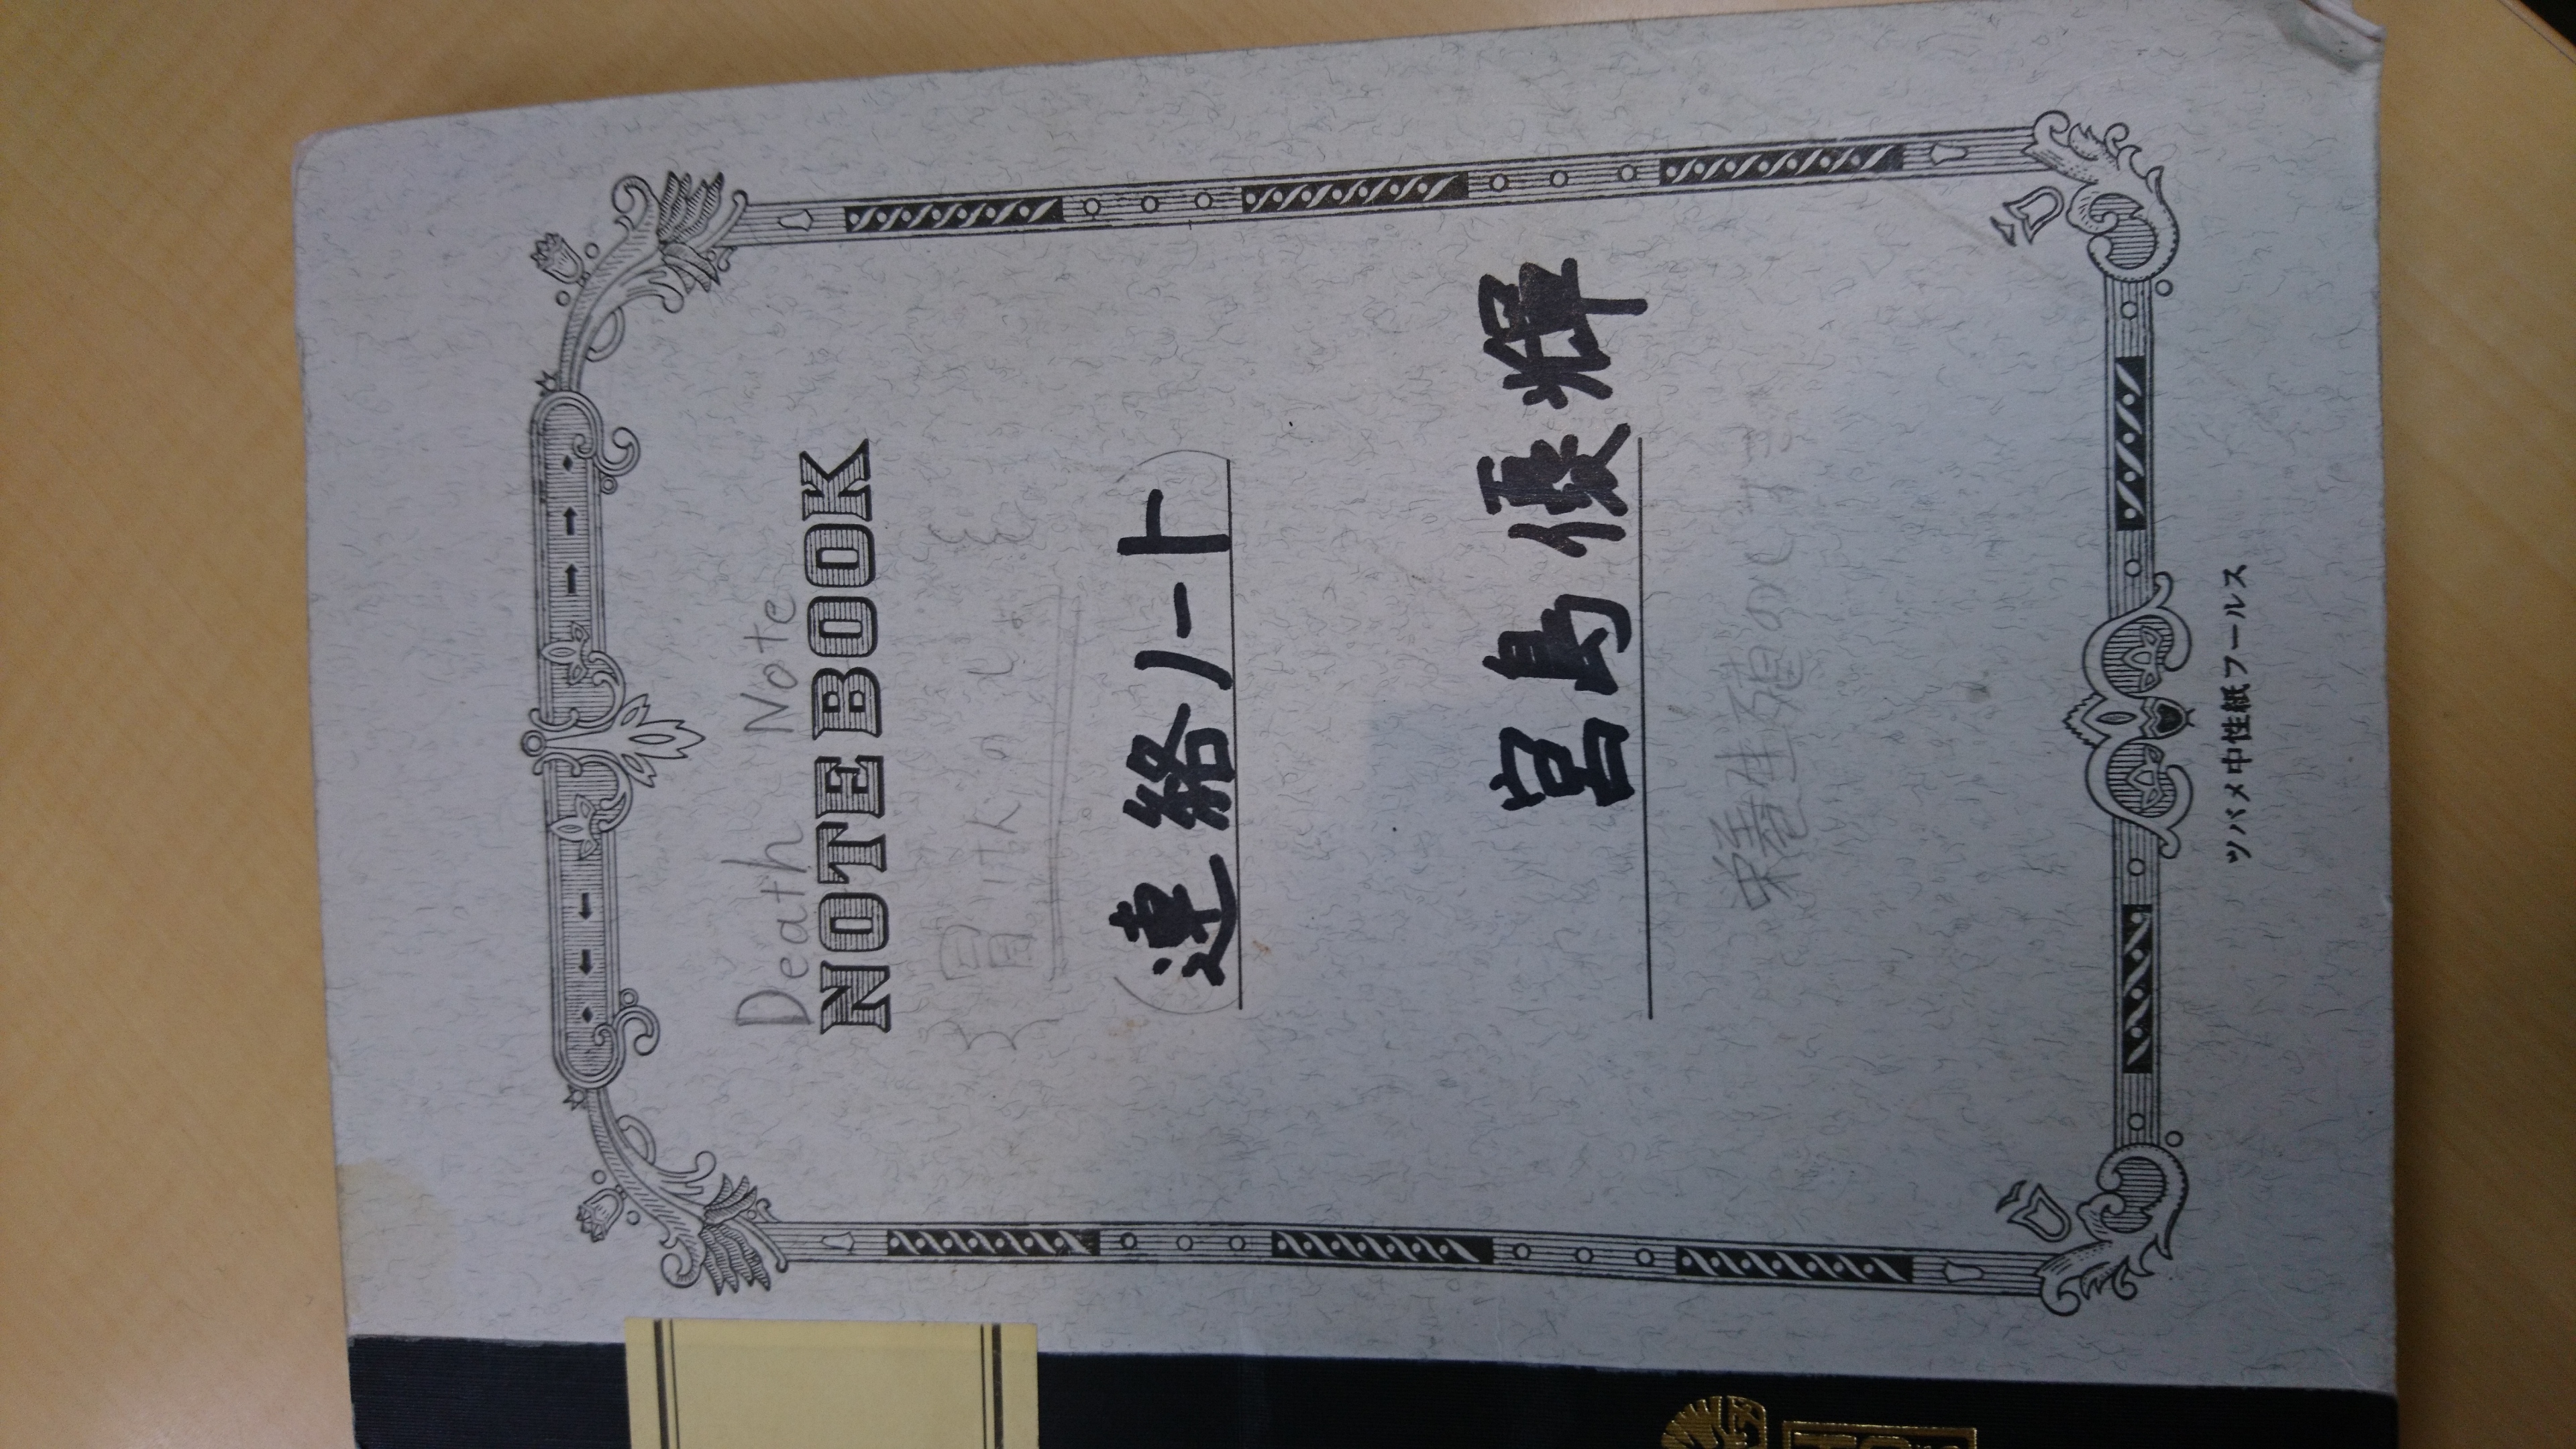 Death Note
NOTE BOOK
冒けんのしょ
(連絡ノート)
宮島優輝
栄養生殖のしすぎ
ツバメ中性紙フールス